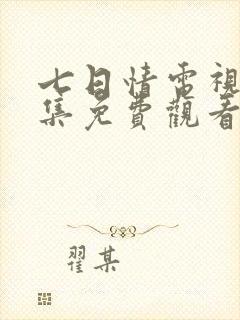 七日情電視
集免費觀看
翟某